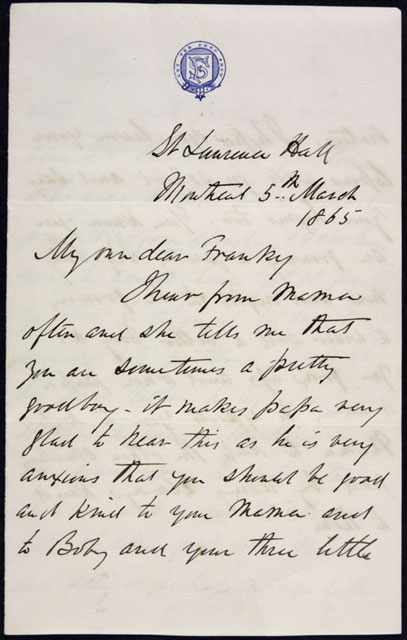 St Lawrence Hall
Montreal 5th March
1865
My own dear Franky
I hear from Mama
often and she tells me that
you are sometimes a pretty
good boy - it makes papa very
glad to hear this as he is very
anxious that you should be good
and kind to your Mama and
to Boby and your three little